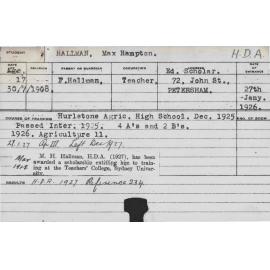 STUDENT
HALLMAN, Max Hampton. H.D.A.
PARENT OR GUARDIAN OCCUPATION ADDRESS
Dec. Ed. Scholar.
17 F.Hallman, Teacher. 72, John St., 27th
30/7/1908. PETERSHAM. Jany.
1926.
COURSE OF TRAINING Hurlstone Agric. High School. Dec. 1925
Passed Inter. 1925. 4 A's and 2 B's.
1926. Agriculture 11.
Left Dec
M. H. Hallman, H.D.A. (1927), has been
awarded a scholarship entitling him to train-
ing at the Teachers' College, Sydney Univer-
sity.
RESULTS H.D.A. 1927 Reference 234.